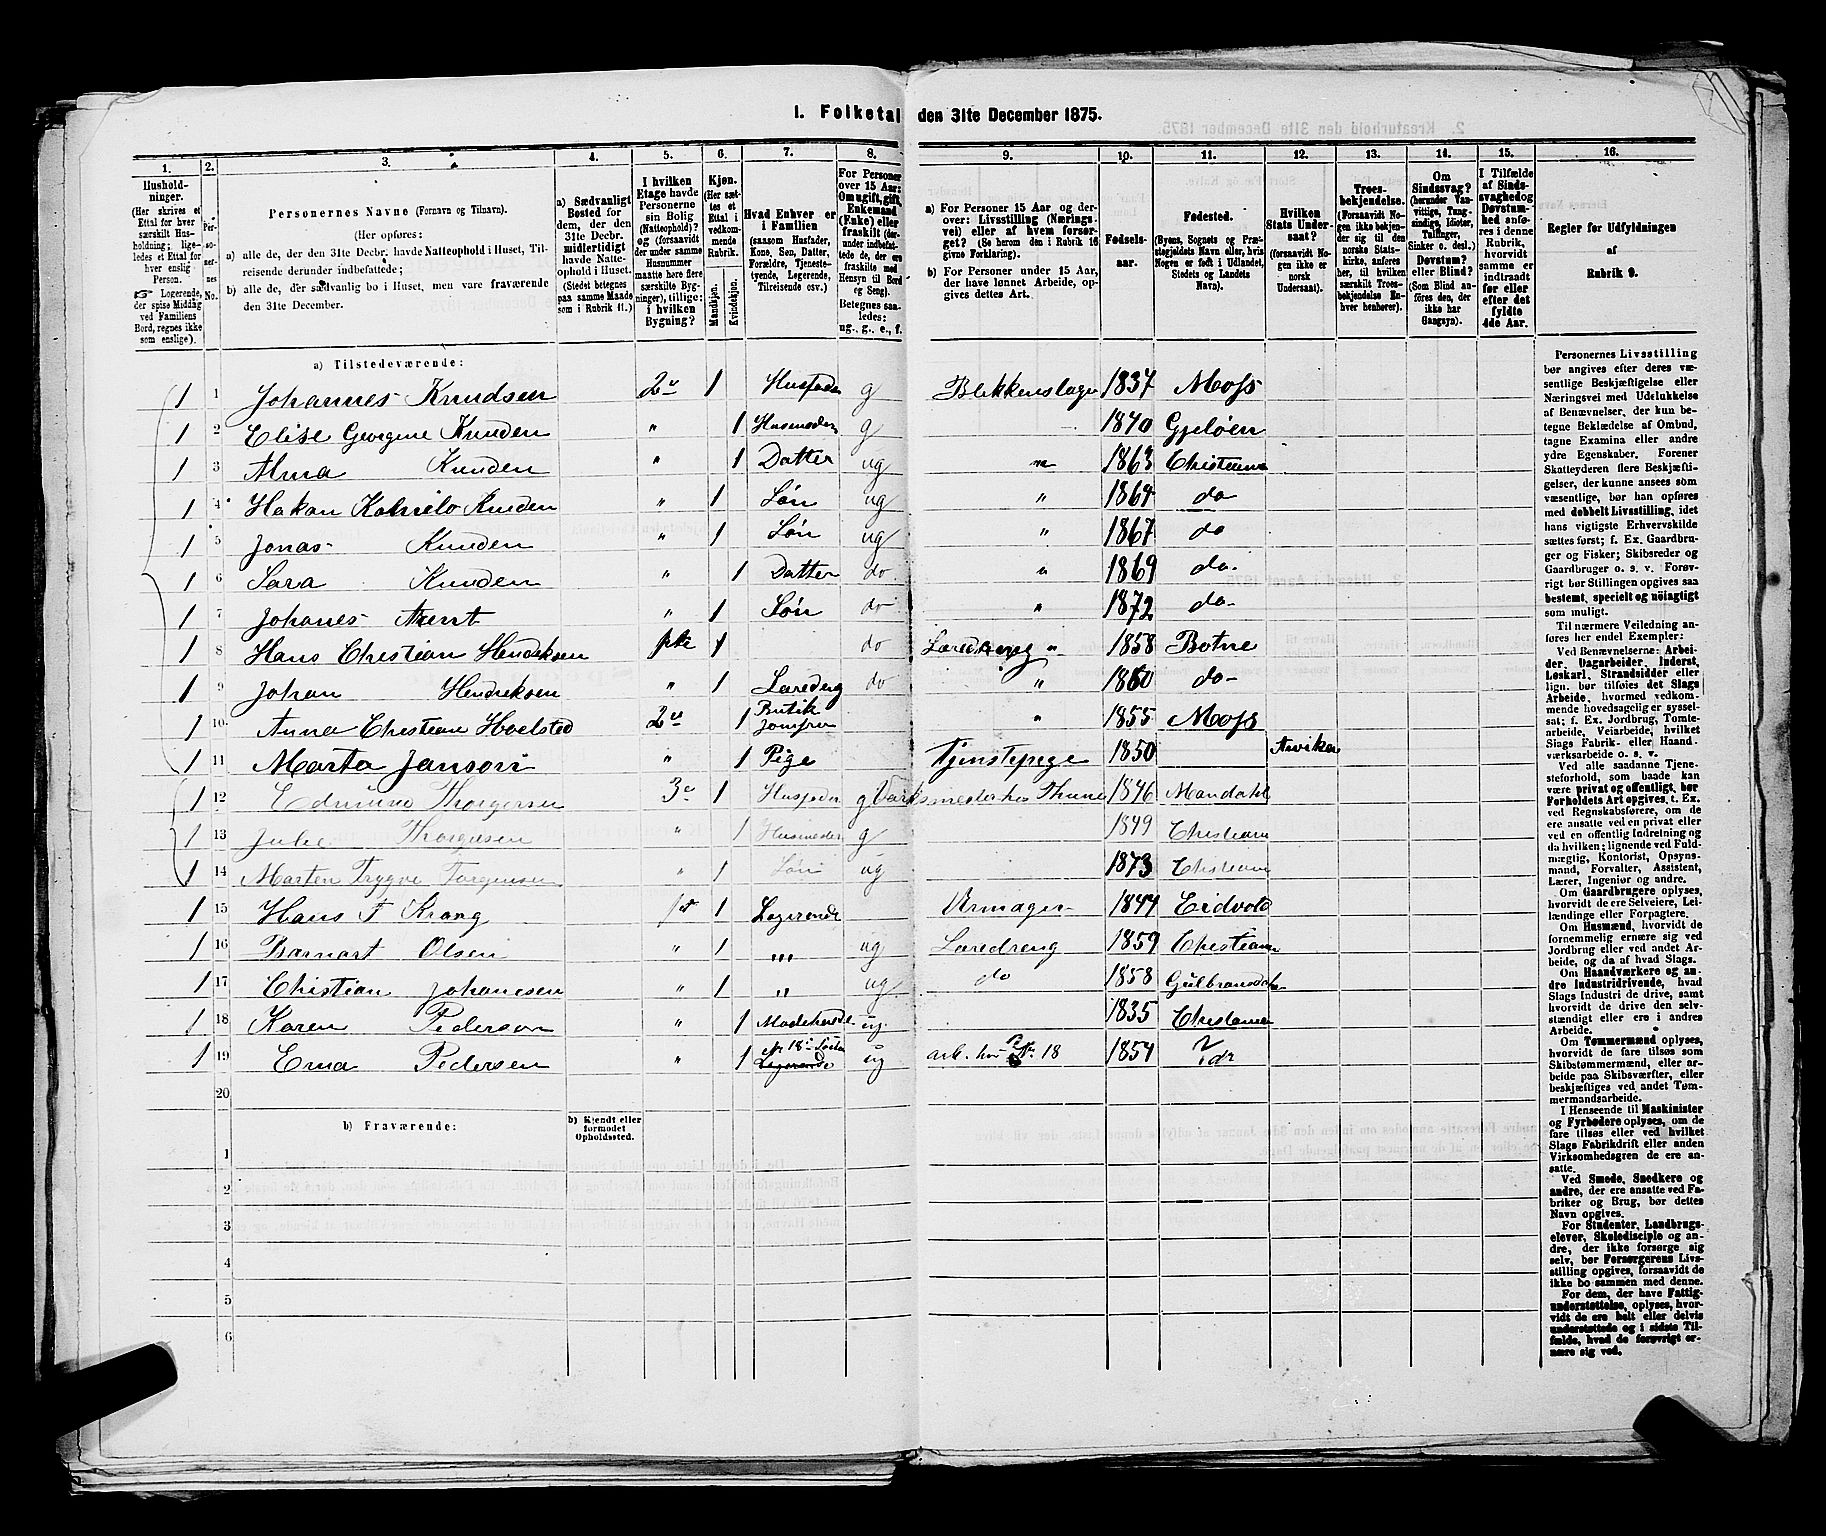 1. Folketal den 31te December 1875.
1. 2. 3. 4. 5. 6. 7. 8. 9. 10. 11. 12. 13. 14. 15. 16.
Husholdninger. (Her skrives et Ettal for hver særskilt Husholdning; ligeledes et Ettal for hver enslig Person. Logerende, der spise Middag ved Familiens Bord, regnes ikke som enslige).
Personernes No.
Personernes Navne (Fornavn og Tilnavn).
(Her opføres:
a) alle de, der den 31te Decbr. havde Natteophold i Huset, Tilreisende derunder indbefattede;
b) alle de, der sædvanlig bo i Huset, men vare fraværende den 31te December.
a) Sædvanligt Bosted for dem, der den 31te Decbr. midlertidigt havde Natteophold i Huset. (Stedet betegnes paa samme Maade som i Rubrik 11.)
I hvilken Etage havde Personerne sin Bolig (Natteophold)? og (forsaavidt der under samme Husnummer maatte høre flere særskilte Bygninger), tillige: i hvilken Bygning?
Kjøn. (Her sættes et Ettal i vedkommende Rubrik.
Mandkjøn. Kvindekjøn.
Hvad Enhver er i Familien (saasom Husfader, Kone, Søn, Datter, Forældre, Tjenestetyende, Logerende, Tilreisende osv.)
For Personer over 15 Aar: Om ugift, gift, Enkemand (Enke) eller fraskilt (derunder indbefattede de, der ere fraskilte med Hensyn til Bord og Seng). Betegnes saaledes: ug., g., e., f.
a) For Personer 15 Aar og derover: Livsstilling (Næringsvei) eller af hvem forsørget? (Se herom den i Rubrik 16 givne Forklaring).
b) For Personer under 15 Aar, der have lønnet Arbeide, opgives dettes Art.
Fødselsaar.
Fødested. (Byens, Sognets og Præstegjeldets Navn eller, hvis Nogen er født i Udlandet, Stedets og Landets Navn).
Hvilken Stats Undersaat? (forsaavidt Nogen ikke er norsk Undersaat).
Troesbekjendelse. (Forsaavidt Nogen ikke bekjender sig til den norske Statskirke, anføres her, til hvilken særskilt Troesbekjendelse Enhver henhører).
Om Sindssvag? (herunder Vanvittige, Tungsindige, Idioter, Tullinger, Sinker o. desl.) Døvstum? eller Blind? (Som Blind anføres den, der ikke har Gangsyn).
I Tilfælde af Sindssvaghed og Døvstumhed anføres i denne Rubrik, hvorvidt samme er indtraadt før eller efter det fyldte 4de Aar.
Regler for Udfyldningen af Rubrik 9.
a) Tilstedeværende:
1 1 Johannes Knudsen 1 Husfader g Blekkenslager 1837 Moss
1 2 Elise Georgine Knuden " 1 Husmoder g 1840 Gjeløen
1 3 Knuden " 1 Datter ug " 1863 Christiania
1 4 Hakon Knuden " 1 Søn ug " 1864 do
1 5 Jonas Knuden " 1 Søn ug " 1867 do
1 6 Sara Knuden " 1 Datter do " 1869 do
1 7 Johanes Arent " 1 Søn do " 1872 do
1 8 Hans Christian Hendeksen 1 do " 1858 Botne
1 9 Johan Hendreksen " 1 do " 1860 do
1 10 Anna Christiane Hoelsted 1 Butik Jomfru " 1855 Moss
1 11 Marta Janson " 1 Pige Tjenstepege 1850 Arvika
1 12 Edmund Thorgersen 1 Husfader g Værksmester hos Thune 1846 Mandahl
1 13 Julie Thorgesen " 1 Husmoder g 1849 Christiania
1 14 Marten Trygve Torgensen " 1 Søn ug 1873 Christiania
1 15 Hans Krang 1 Logerende Urmager 1844 Eidvold
1 16 Barnart Olsen " 1 " ug Læredreng 1859 Christiania
1 17 Christian Johanesen " 1 " ug do 1858 Gulbransd
1 18 Karen Pederson " 1 ug. 1835 Christiania
1 19 Erna Pedersen " 1 No 18s Logerende ug arb. hos No. 18 1854
20
b) Fraværende:
b) Kjendt eller formodet Opholdssted.
1
2
3
4
5
6
Personernes Livsstilling bør angives efter deres væsentlige Beskjæftigelse eller Næringsvei med Udelukkelse af Benævnelser, der kun betegne Beklædelse af Ombud, tagne Examina eller andre ydre Egenskaber. Forener Skatteyderen flere Beskjæftigelser, der kunne ansees som væsentlige, bør han opføres med dobbelt Livsstilling, idet hans vigtigste Erhvervskilde sættes først; f. Ex. Gaardbruger og Fisker; Skibsreder og Gaardbruger o. s. v. Forøvrigt bør Stillingen opgives saa bestemt, specielt og nøiagtigt som muligt.
Til nærmere Veiledning anføres her endel Exempler:
Ved Benævnelserne: Arbeider, Dagarbeider, Inderst, Løskarl, Strandsidder eller lign. bør tilføies det Slags Arbeide, hvormed vedkommende hovedsagelig er sysselsat; f. Ex. Jordbrug, Tomtearbeide, Veiarbeide, hvilket Slags Fabrik- eller Haandværksarbeide o. s. v.
Ved alle saadanne Tjenesteforhold, som baade kan være privat og offentligt, bør Forholdets Art opgives, t. Ex. ved Regnskabsførere, om de ere ansatte ved en privat eller ved en offentlig Indretning og da hvilken; lignende ved Fuldmægtig, Kontorist, Opsynsmand, Forvalter, Assistent, Lærer, Ingeniør og andre.
Om Gaardbrugere oplyses, hvorvidt de ere Selveiere, Leilændinge eller Forpagtere.
Om Husmænd, hvorvidt de fornemmelig ernære sig ved Jordbrug eller ved andet Arbeide, og da af hvad Slags.
Om Haandværkere og andre Industridrivende, hvad Slags Industri de drive, samt hvorvidt de drive den selvstændigt eller ere i andres Arbeide.
Om Tømmermænd oplyses, hvorvidt de fare tilsøs som Skibstømmermænd, eller arbeide paa Skibsværfter, eller beskjæftiges ved andet Tømmermandsarbeide.
I Henseende til Maskinister og Fyrbødere oplyses, om de fare tilsøs eller ved hvilket Slags Fabrikdrift eller anden Virksomhedsgren de ere ansatte.
Ved Smede, Snedkere og andre, der ere ansatte ved Fabriker og Brug, bør dettes Navn opgives.
For Studenter, Landbrugselever, Skoledisciple og andre, der ikke forsørge sig selv, bør Forsørgerens Livsstilling opgives, forsaavidt de ikke bo sammen med denne.
For dem, der have Fattigunderstøttelse, oplyses, hvorvidt de ere helt eller delvis understøttede og i sidste Tilfælde, hvad de forøvrigt ernære sig ved.